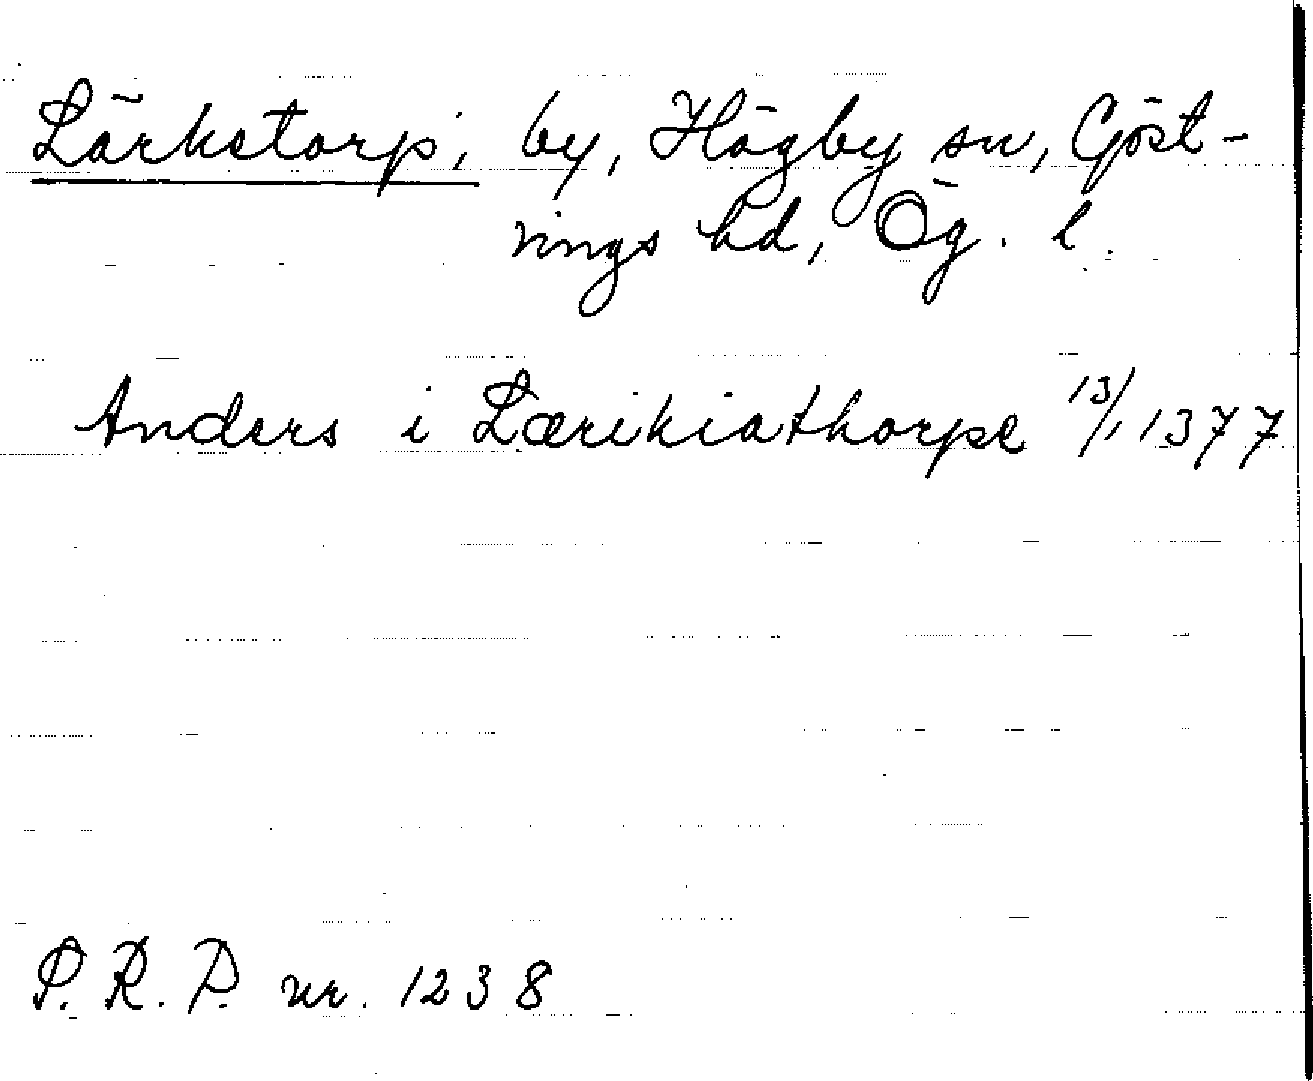 Lärkstorp, by, Högby sn, Göst-
rings hd, Ög. l.
Anders i Lærikiathorpe 13/1 1377
P. R. P. nr. 1238